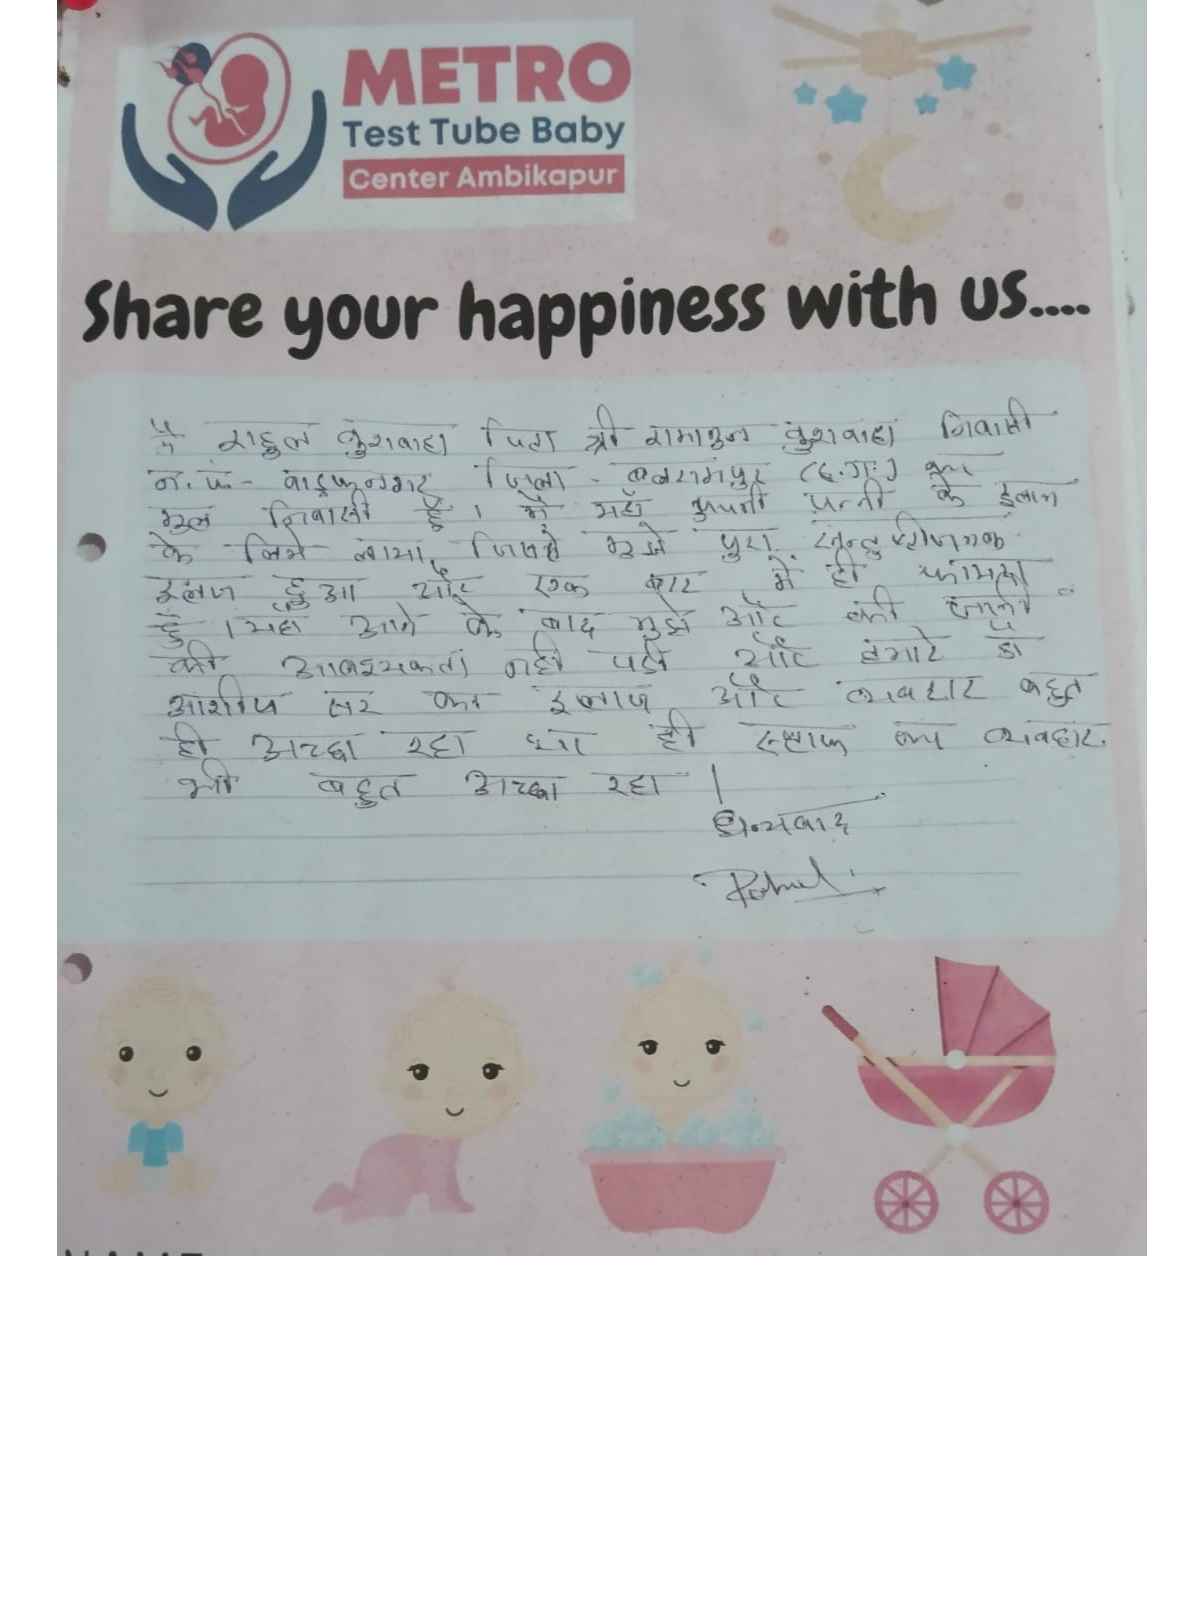 METRO
Test Tube Baby
Center Ambikapur
Share your happiness with us....
मैं राहुल कुशवाहा पिता श्री रामावृज कुशवाहा निवासी
न. पं.- वाड्रफनगर जिला - बलरामपुर (छ.ग.) का
मुल निवासी हूँ। मैं यहाँ अपनी पत्नी के इलाज
के लिये आया, जिससे मुझे पुरा सन्तुष्टीजनक
इलाज हुआ और एक बार में ही फायदा
हुँ। यहाँ आने के बाद मुझे और कही जाने
की आवश्यकता नही पडी और हमारे डॉ
आशीष सर का इलाज और व्यवहार बहुत
ही अच्छा रहा साथ ही स्टाफ का व्यवहार
भी बहुत अच्छा रहा।
धन्यवाद
Rahul